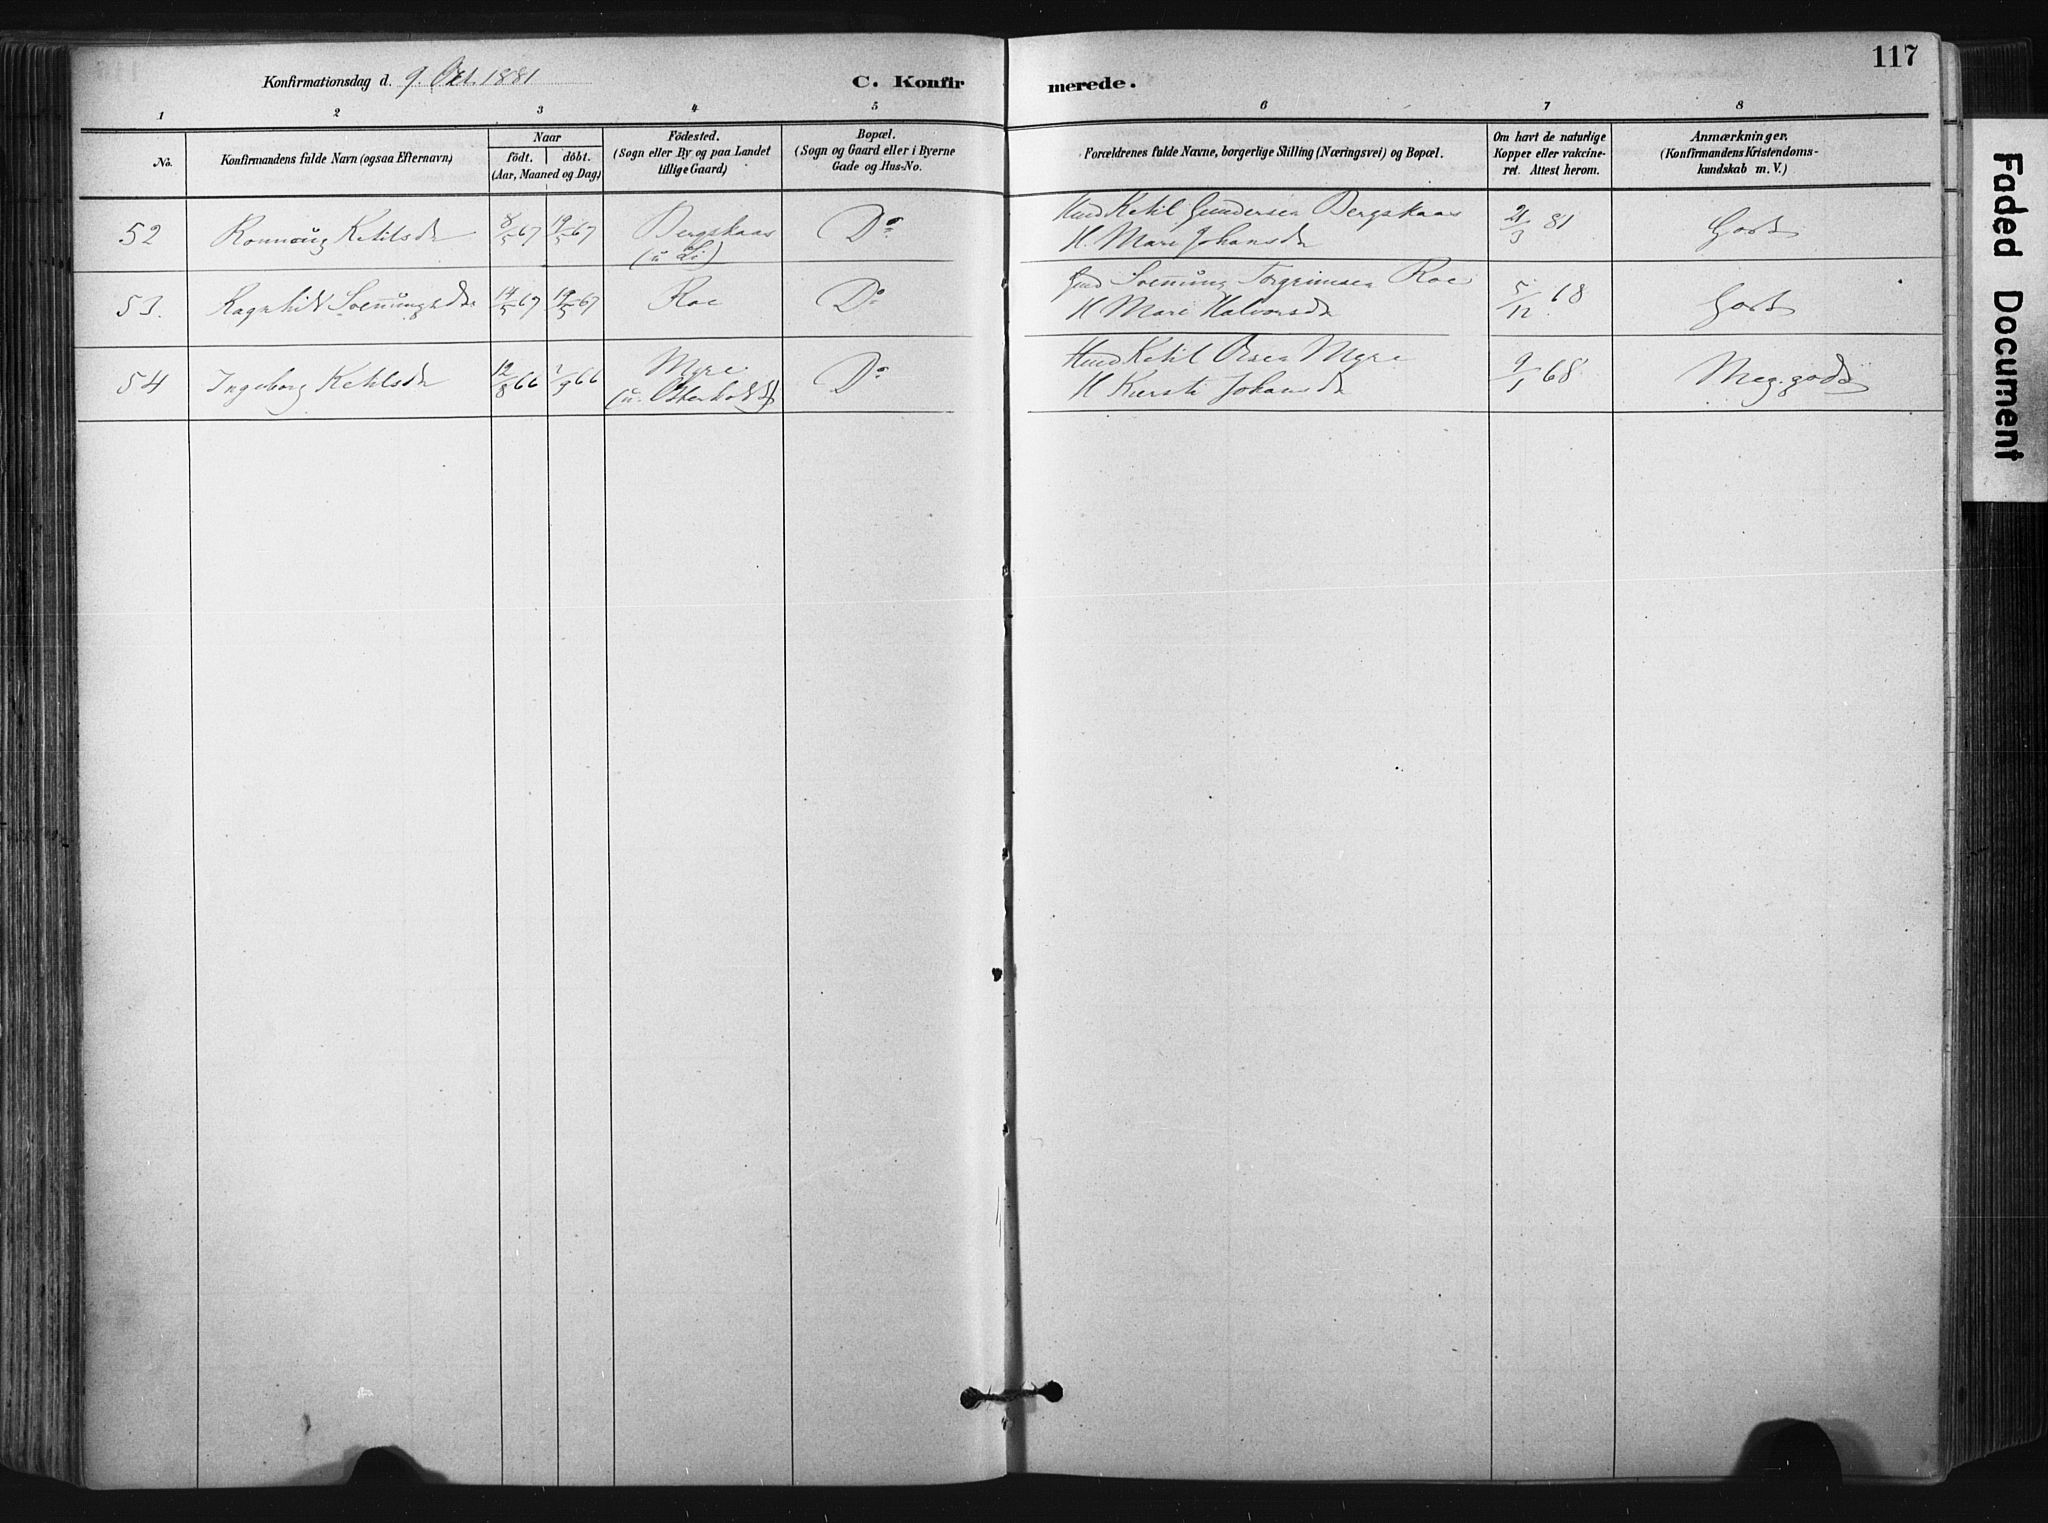 117
Konfirmationsdag d. 9. Okt. 1881
C. Konfirmerede.
1 2 3 4 5 6 7 8
No.
Konfirmandens fulde Navn (ogsaa Efternavn)
Naar
födt. döbt.
(Aar, Maaned og Dag)
Födested.
(Sogn eller By og paa Landet
tillige Gaard)
Bopæl.
(Sogn og Gaard eller i Byerne
Gade og Hus-No.
Forældrenes fulde Navne, borgerlige Stilling (Næringsvei) og Bopæl.
Om havt de naturlige
Kopper eller vakcine-
ret. Attest herom.
Anmærkninger.
(Konfirmandens Kristendoms-
kundskab m. V.)
52 Ronnoug Ketilsd 8/5 67 19/5 67 Bergskaas (u Li) Do Husd Ketil Gundersen Bergskaas 21/3 81 Godt
H. Mari Johansd
53. Ragnhild Svenungsd 14/5 67 19/5 67 Roe Do Gmd Svenung Torgrimsen Roe 5/12 68 Godt
H Mari Halvorsd
54 Ingeborg Ketilsd 12/8 66 /9 66 Myre (u. Osterholdt) Do Husd Ketil Olsen Myre 9/1 68 Meg. godt
H Kiersti Johansd
Faded Document